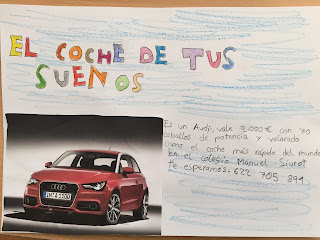 EL COCHE DE TUS
SUEÑOS
Es un Audi, vale 9.000€ con 70
caballos de potencia y valorado
como el coche más rápido del mundo
En el colegio Manuel Siurot
te esperamos. 622 705 891